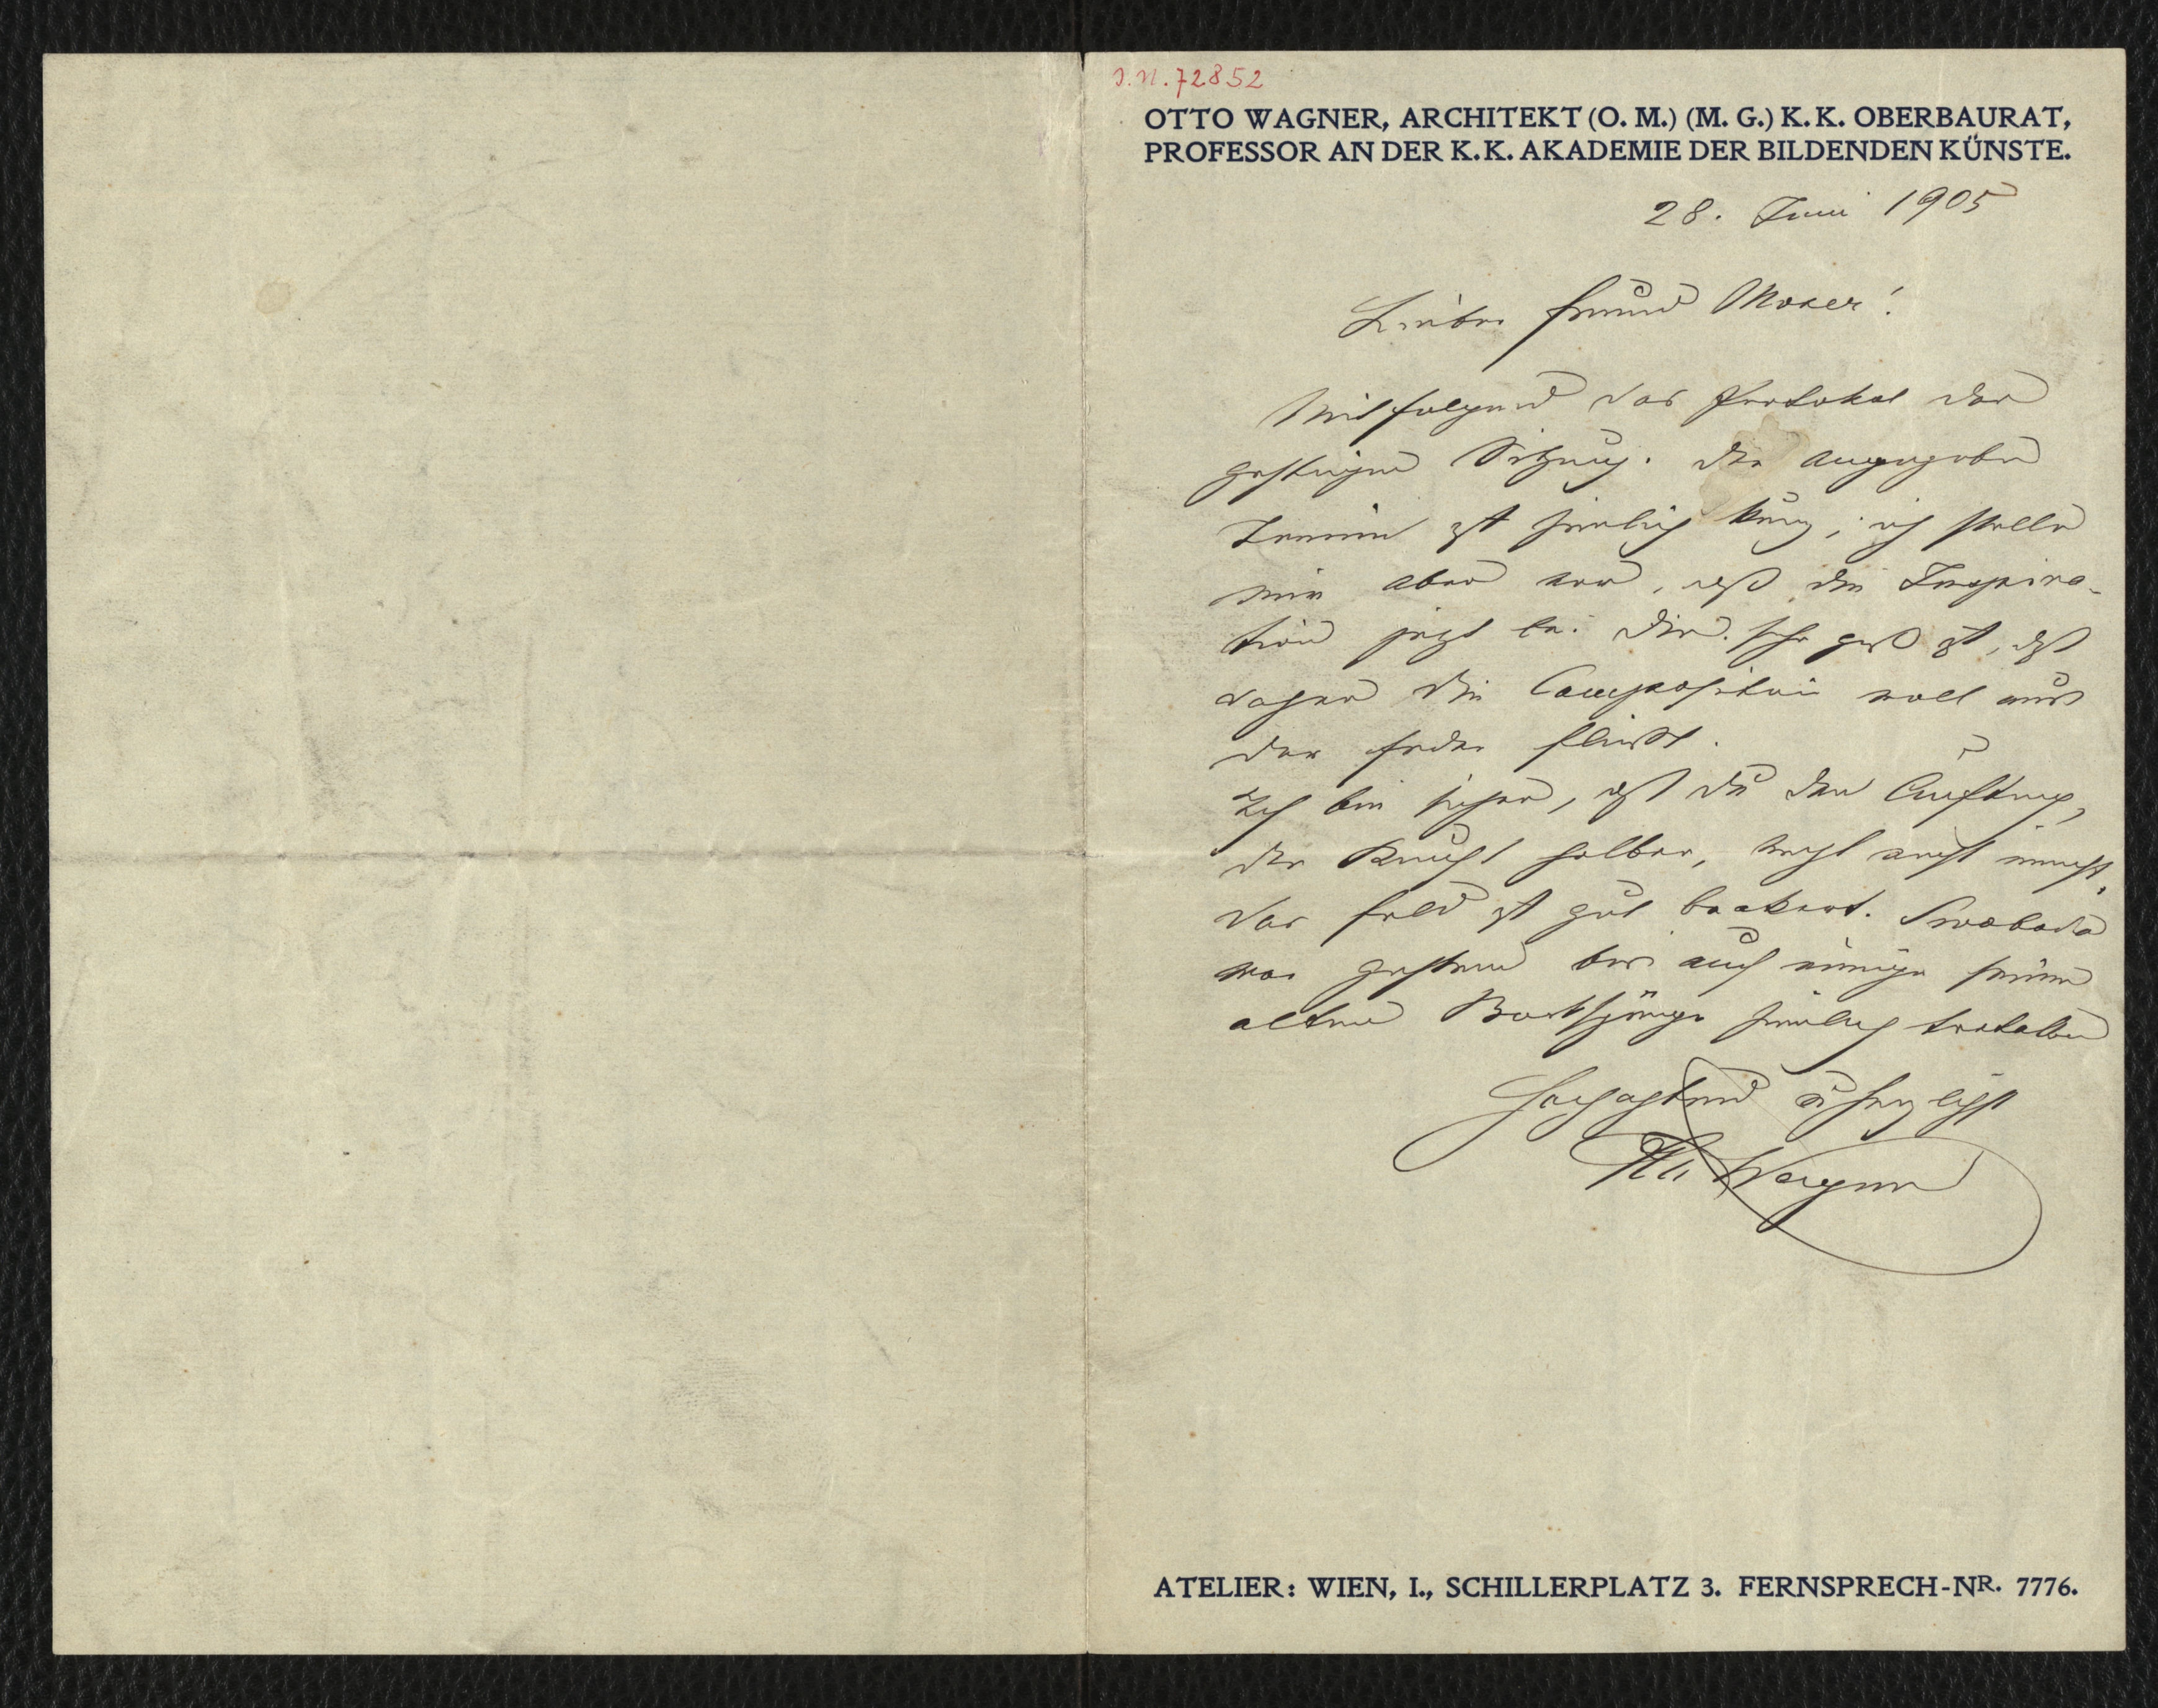 J.N. 72852
OTTO WAGNER, ARCHITEKT (O. M.) (M. G.) K. K. OBERBAURAT,
PROFESSOR AN DER K. K. AKADEMIE DER BILDENDEN KÜNSTE.
28. Juni 1905
Lieber Freund Moser!
Mitfolgend das Protokol der
gestrigen Sitzung. Der angegebene
Termin ist ziemlich kurz; ich stelle
mir aber vor, daß die Inspira-
tion jetzt bei Dir sehr groß ist, daß
daher die Composition voll aus
der Feder fließt.
Ich bin sicher, daß Du den Auftrag,
der Kunst halber,
das Feld ist gut beackert. Swoboda
war gestern bis auf einige seiner
alten ziemlich
Hochachtend u herzlichst
Otto Wagner
ATELIER: WIEN, I., SCHILLERPLATZ 3. FERNSPRECH-NR. 7776.